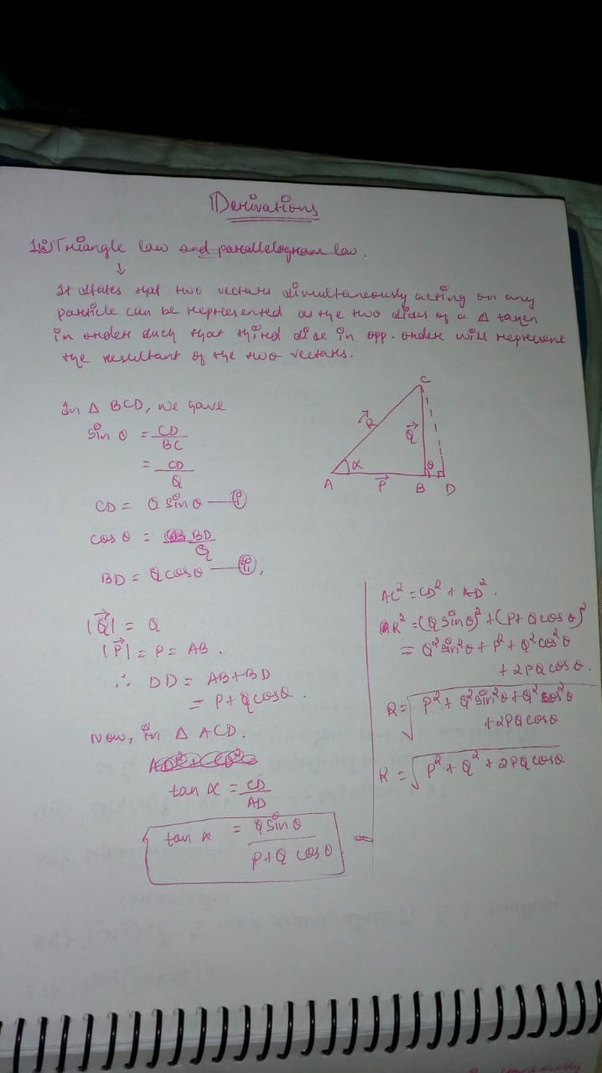 Derivations
1) Triangle law and parallelogram law.
↓
It states that two vectors simultaneously acting on any
particle can be represented as the two sides of a Δ taken
in order such that third side in opp. order will represent
the resultant of the two vectors.
In Δ BCD, we have
sin θ = CD/BC
= CD/Q
CD = Q sin θ — (i)
cos θ = BD/Q
BD = Q cos θ — (ii),
|Q⃗| = Q
|P⃗| = P = AB.
∴ DD = AB+BD
= P+Q cos θ.
Now, in Δ ACD.
tan α = CD/AD
tan α = Q sin θ / P+Q cos θ
C
R⃗
Q⃗
α
θ
A
P⃗
B
D
AC² = CD² + AD².
R² = (Q sin θ)² + (P+Q cos θ)²
= Q² sin² θ + P² + Q² cos² θ
+ 2PQ cos θ.
R = √P² + Q² sin² θ + Q² cos² θ
+ 2PQ cos θ
R = √P² + Q² + 2PQ cos θ